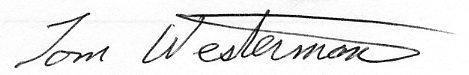 Tom Westerman